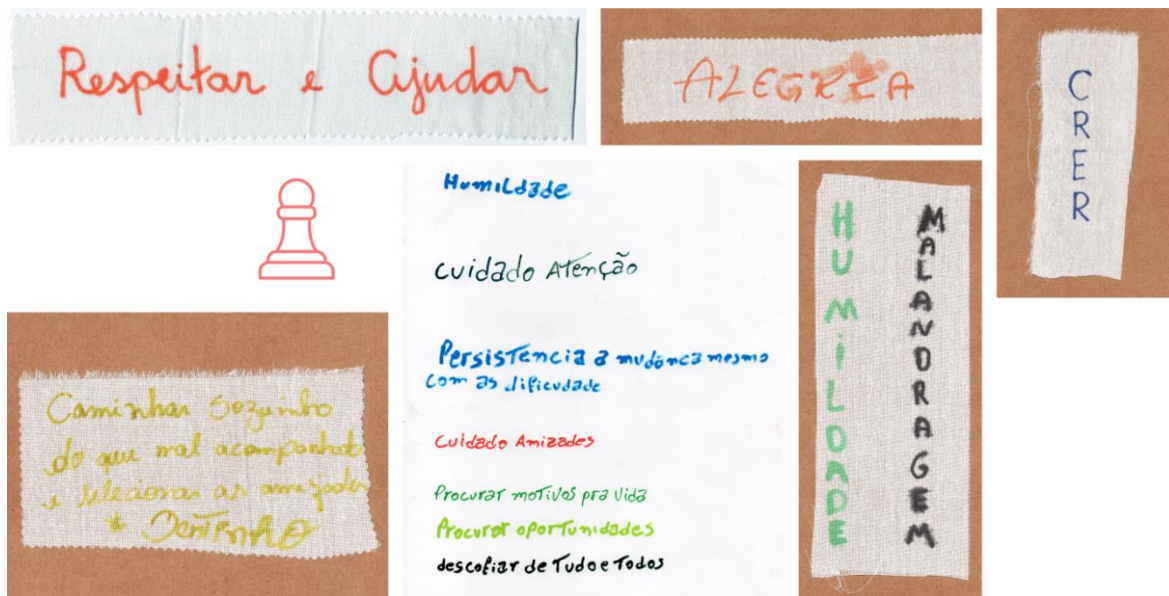 Respeitar e Ajudar
ALEGRIA
CRER
Humildade
cuidado Atenção
Persistencia a mudança mesmo
com as dificudade
cuidado Amizades
Procurar motivos pra vida
Procurar oportunidades
descofiar de Tudo e Todos
HUMILDADE
MALANDRAGEM
Caminhar Sozinho
do que mal acompanhado
e selecionar as amizades
* DENTINHO